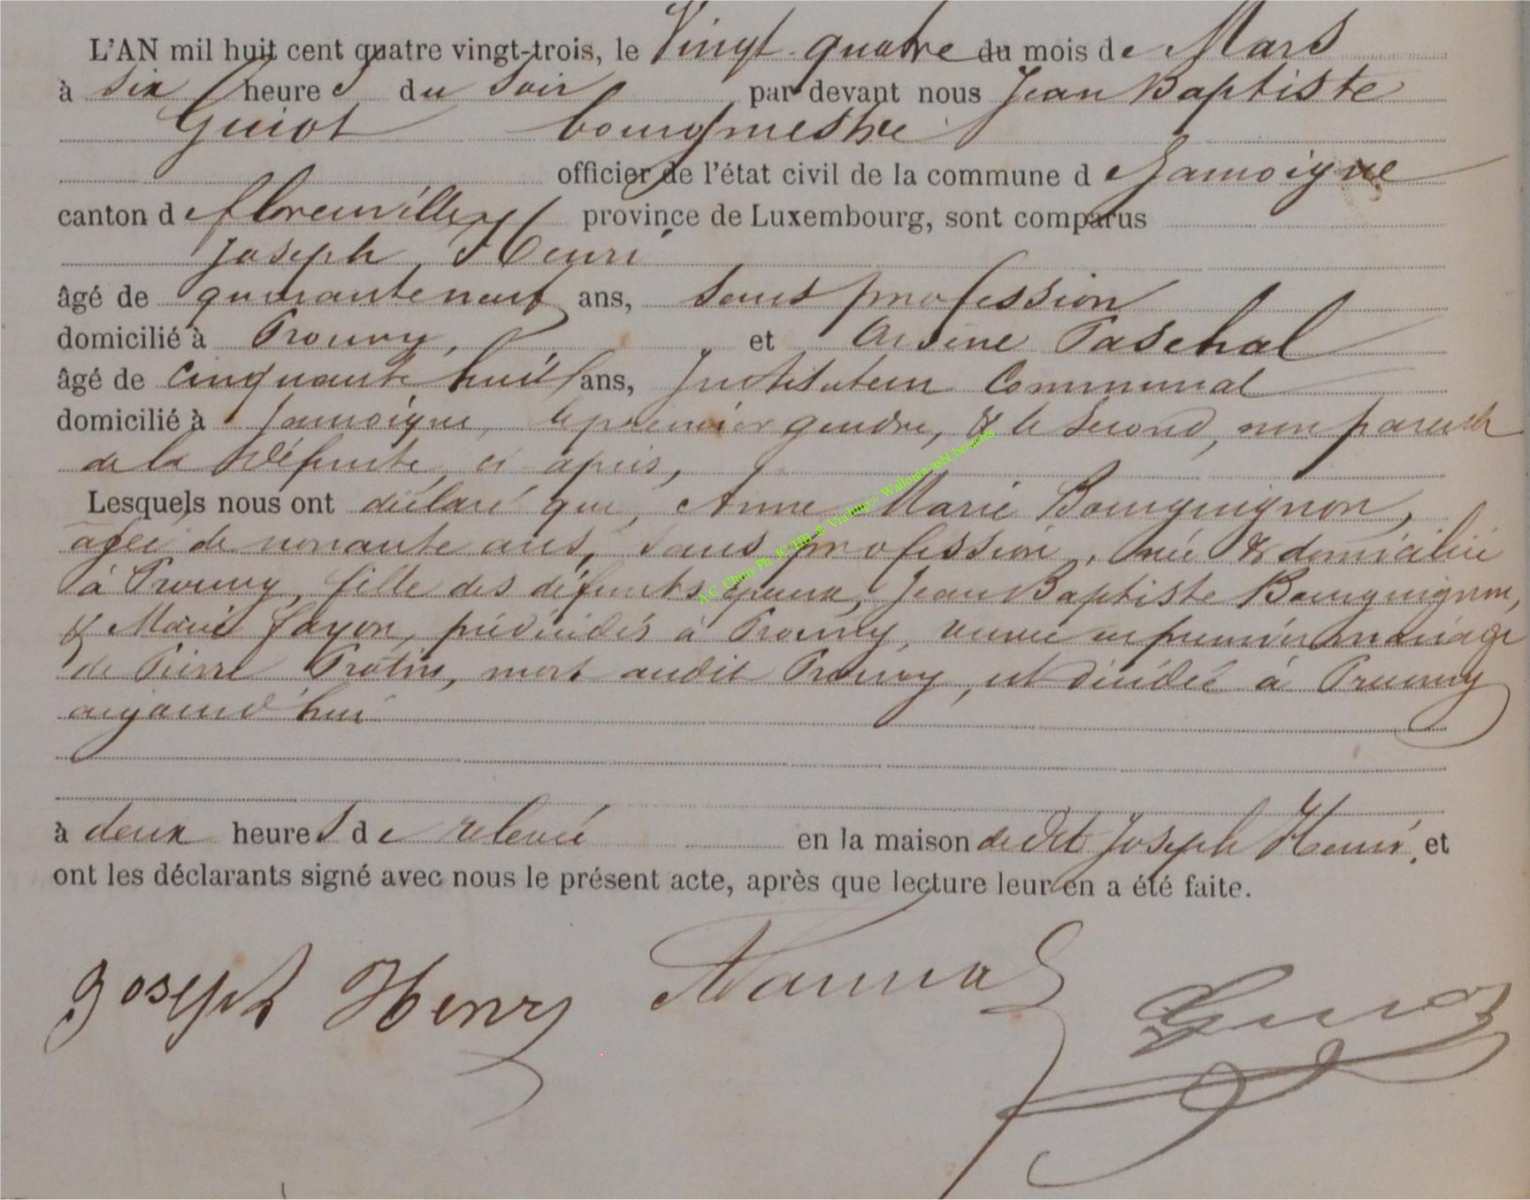 L'AN mil huit cent quatre vingt-trois, le Vingt quatre du mois de Mars
à six heures du soir par devant nous Jean Baptiste
Guiot bourgmestre
officier de l'état civil de la commune de Jamoigne
canton de florenville province de Luxembourg, sont comparus
Joseph Henri
âgé de quarante neuf ans, sans profession
domicilié à Prouvy, et Arsène Paschal
âgé de cinquante huit ans, Instituteur Communal
domicilié à Jamoigne, le premier gendre, & le second, non parent
de la défunte, ci après,
Lesquels nous ont déclaré que, Anne Marie Bourguignon,
agée de nonante ans, sans profession, née & domiciliée
à Prouvy, fille des défunts époux, Jean Baptiste Bourguignon,
& Marie fayon, prédécédés à Prouvy, veuve en premier mariage
de Pierre Protin, mort audit Prouvy, est décédée à Prouvy
aujourd'hui
à deux heures de relevée en la maison dudit Joseph Henri, et
ont les déclarants signé avec nous le présent acte, après que lecture leur en a été faite.
Joseph Henry Guiot